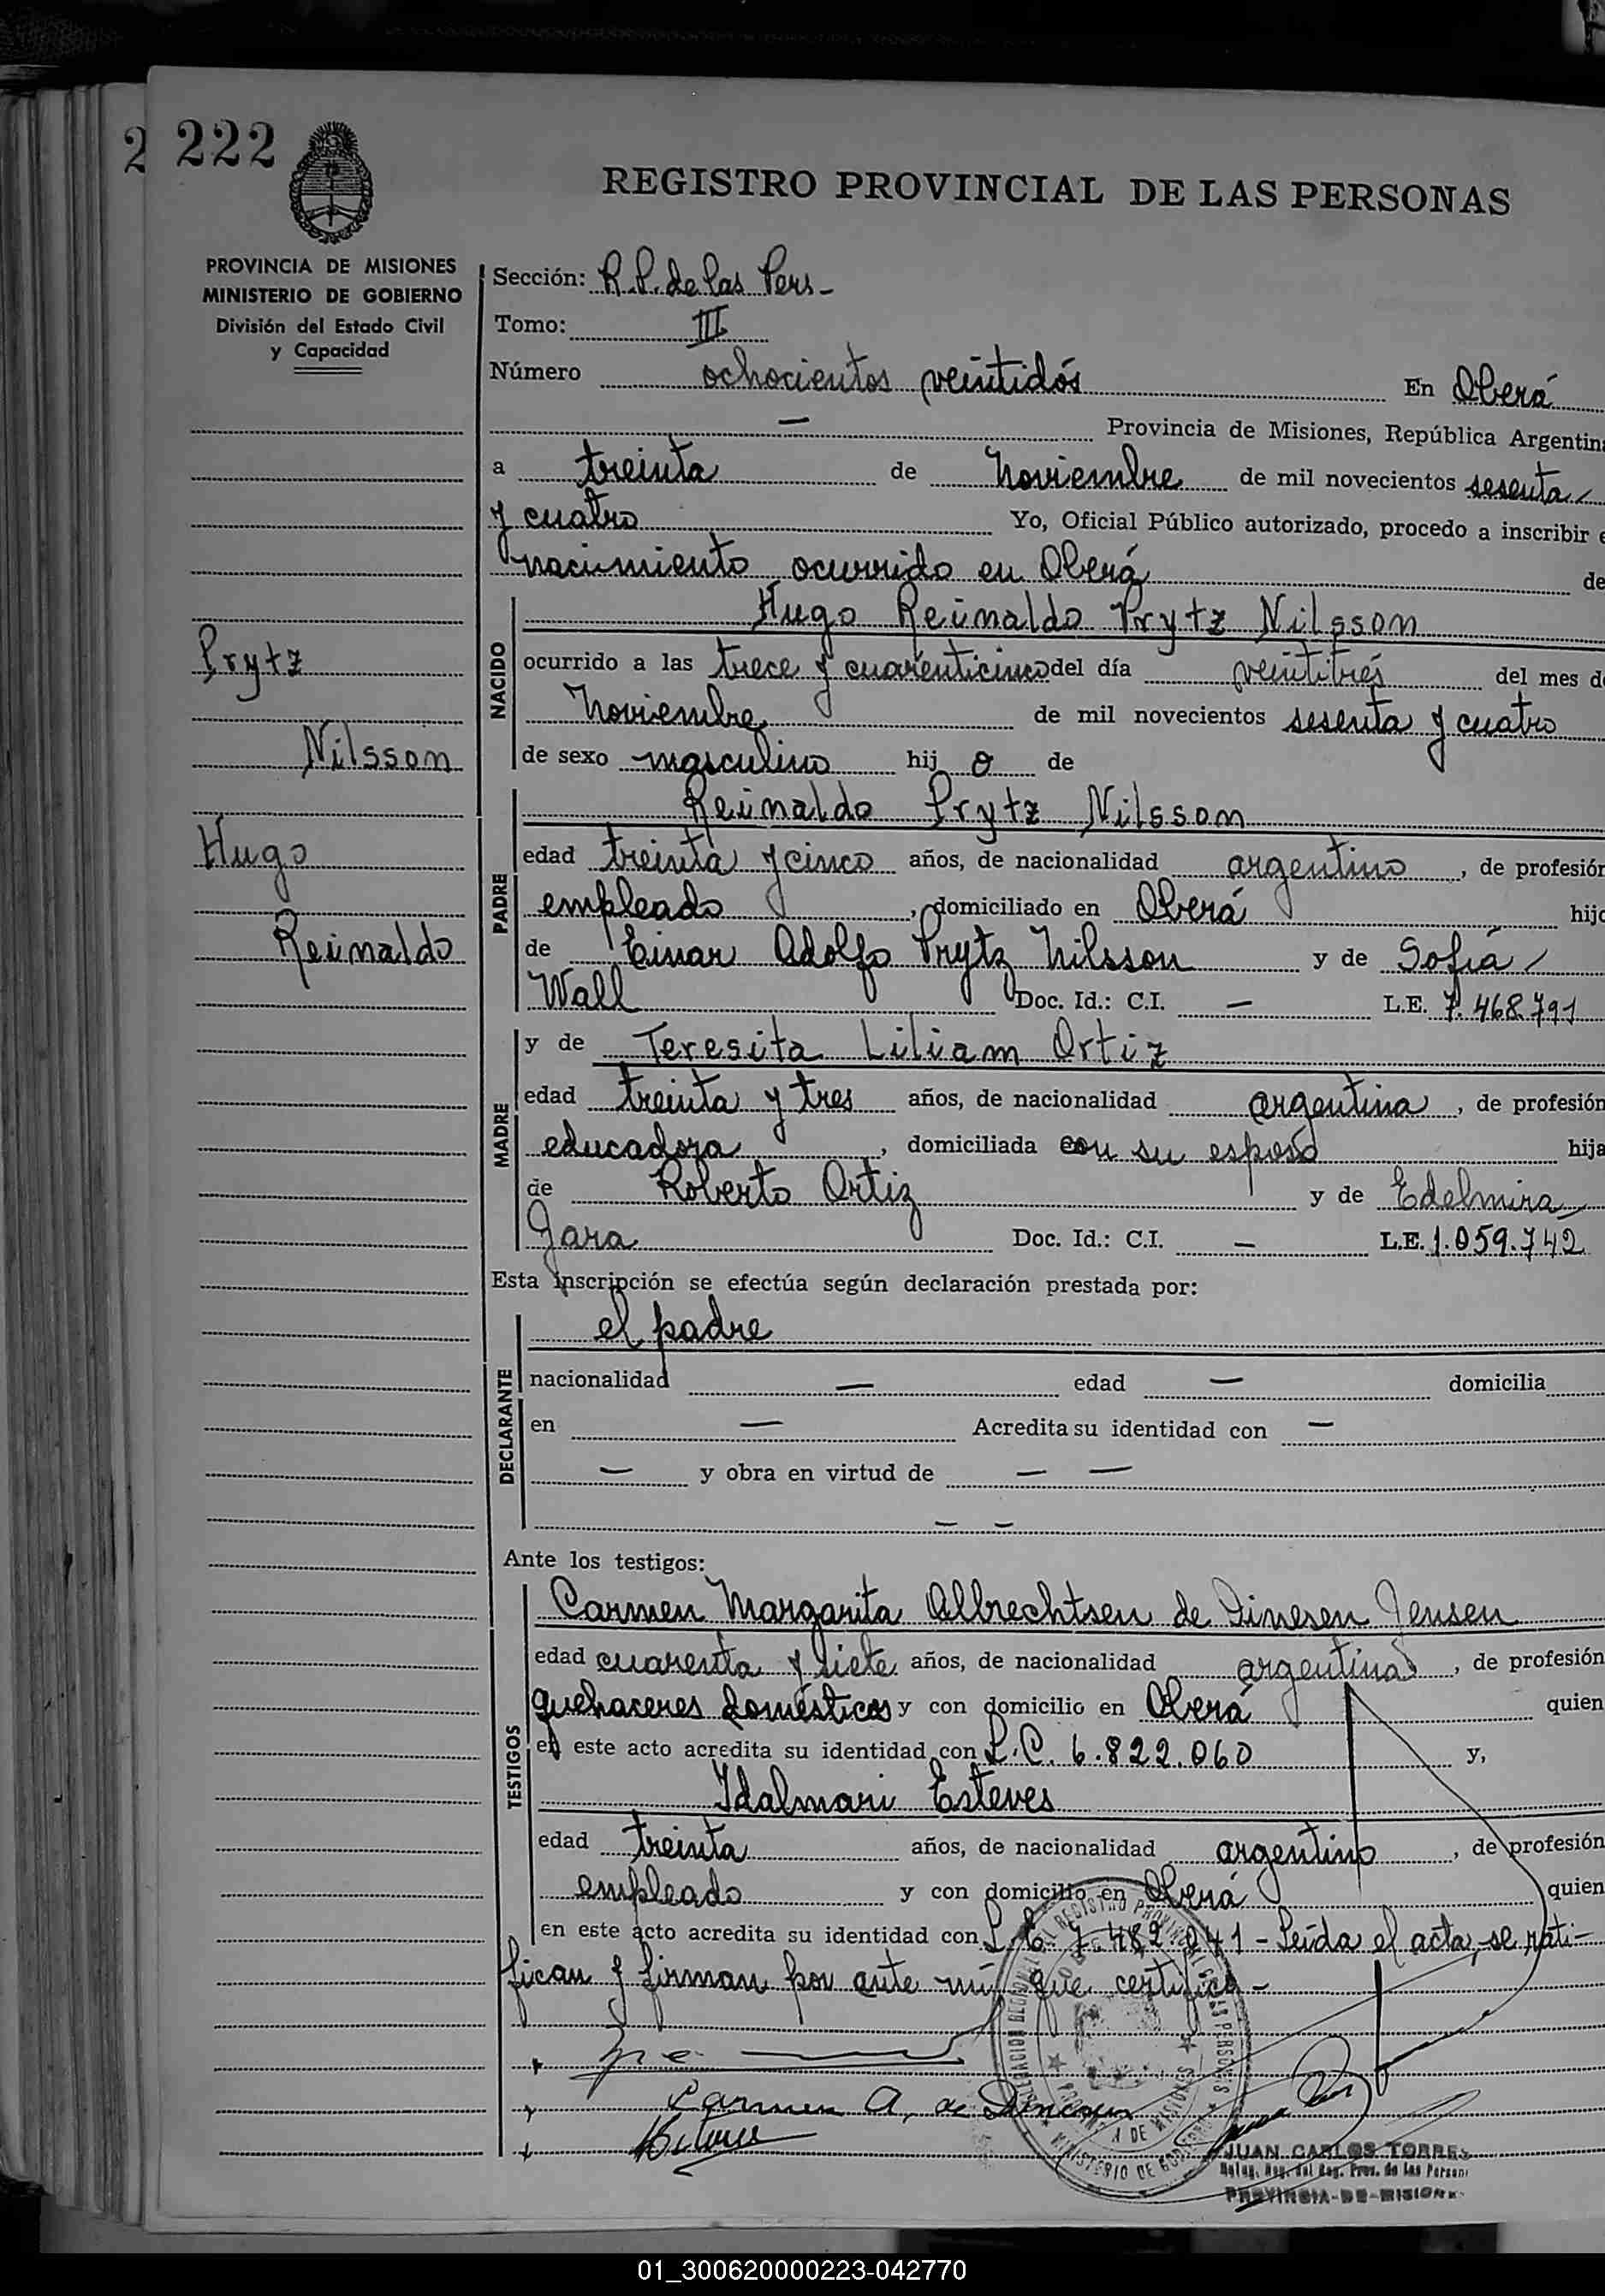 2 222
REGISTRO PROVINCIAL DE LAS PERSONAS
PROVINCIA DE MISIONES
MINISTERIO DE GOBIERNO
División del Estado Civil
y Capacidad
Sección: R.P. de las Pers-
Tomo: III
Número ochocientos veintidós En Oberá
— Provincia de Misiones, República Argentina
a treinta de Noviembre de mil novecientos sesenta
y cuatro Yo, Oficial Público autorizado, procedo a inscribir e
nacimiento ocurrido en Oberá de
Prytz
Nilsson
Hugo
Reinaldo
NACIDO
Hugo Reinaldo Prytz Nilsson
ocurrido a las trece y cuarenticinco del día veintitrés del mes de
Noviembre de mil novecientos sesenta y cuatro
de sexo masculino hij o de
PADRE
Reinaldo Prytz Nilsson
edad treinta y cinco años, de nacionalidad argentino, de profesión
empleado, domiciliado en Oberá hijo
de Einar Adolfo Prytz Nilsson y de Sofía
Wall Doc. Id.: C.I. — L.E. 7.468.791
MADRE
y de Teresita Liliam Ortiz
edad treinta y tres años, de nacionalidad argentina, de profesión
educadora, domiciliada con su esposo hija
de Roberto Ortiz y de Edelmira
Jara Doc. Id.: C.I. — L.E. 1.059.742
Esta inscripción se efectúa según declaración prestada por:
DECLARANTE
el padre
nacionalidad — edad — domicilia
en — Acredita su identidad con —
— y obra en virtud de — —
— —
Ante los testigos:
TESTIGOS
Carmen Margarita Albrechtsen de Dinesen Jensen
edad cuarenta y siete años, de nacionalidad argentina, de profesión
quehaceres domésticos y con domicilio en Oberá quien
en este acto acredita su identidad con L.C. 6.822.060 y,
Idalmari Esteves
edad treinta años, de nacionalidad argentino, de profesión
empleado y con domicilio en Oberá quien
en este acto acredita su identidad con L.E. 7.482.041 - Leída el acta, se rati-
fican y firman por ante mí, que certifico -
Carmen A. de Dinesen
JUAN CARLOS TORRES
PROVINCIA-DE-MISIONES
01_300620000223-042770